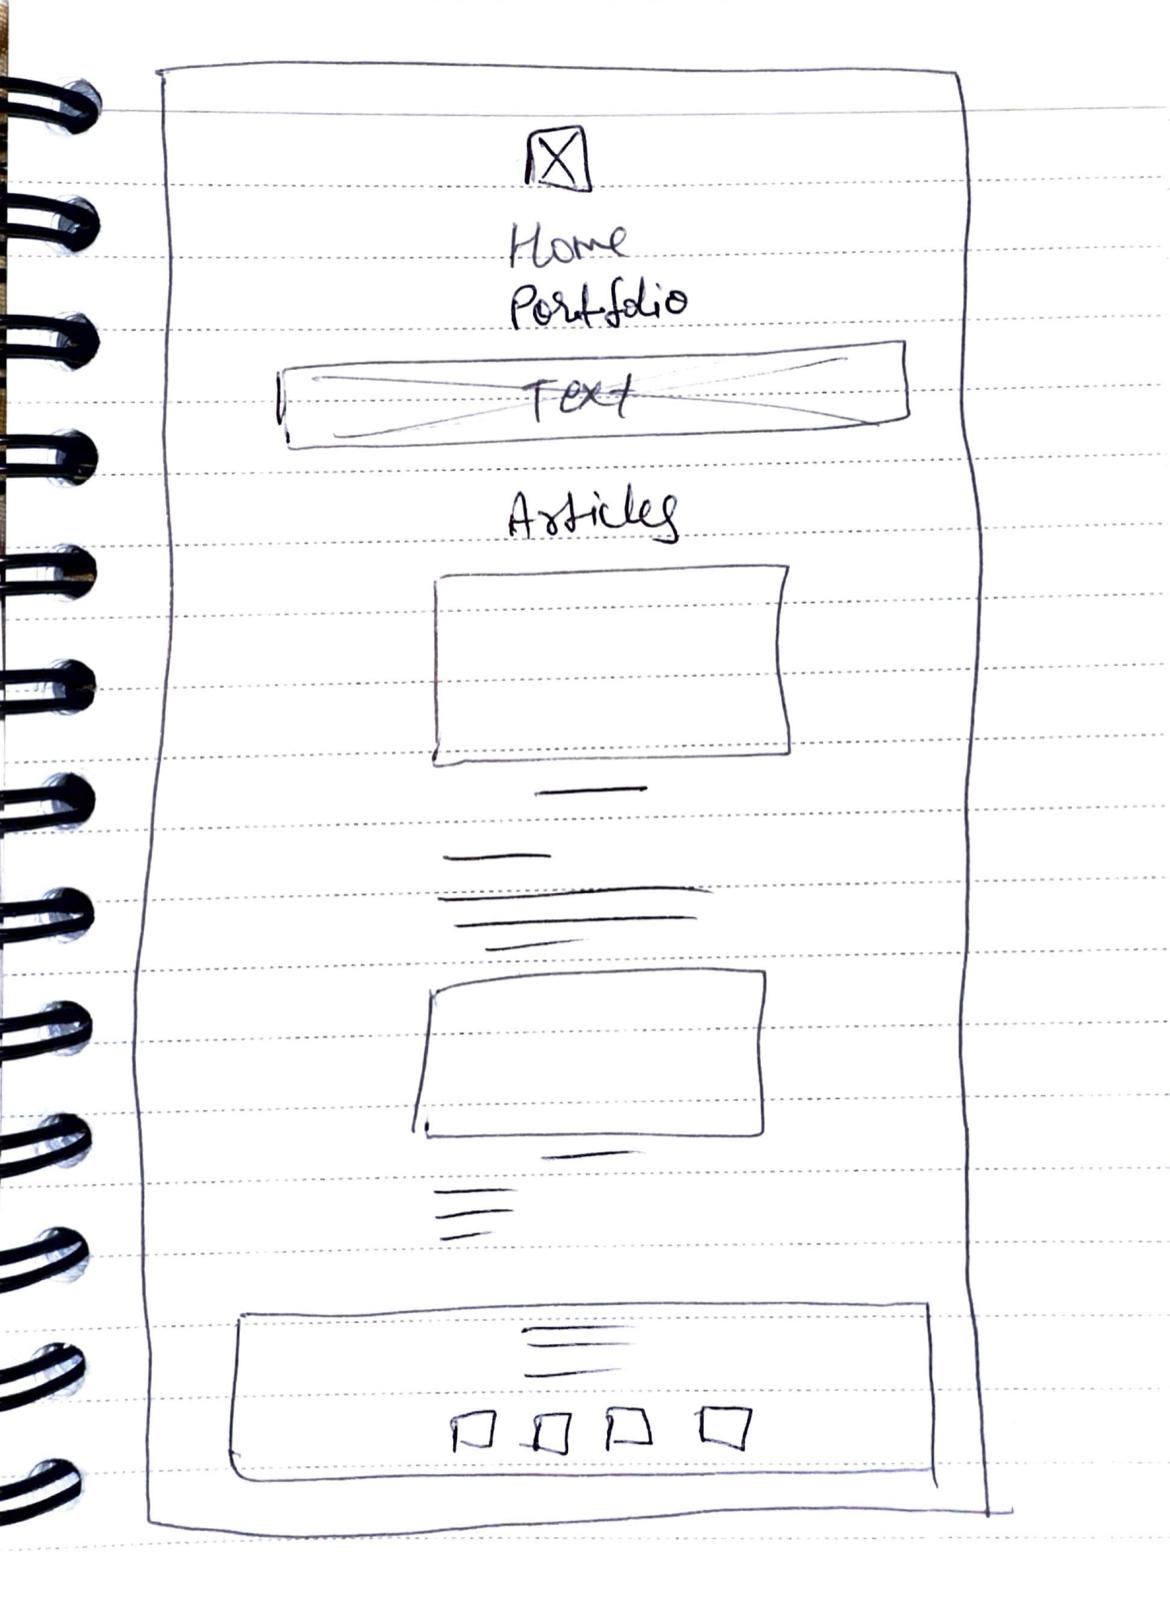 Home
Portfolio
Text
Articles